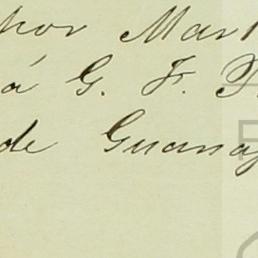 por Mart
á G. F.
de Guanaj